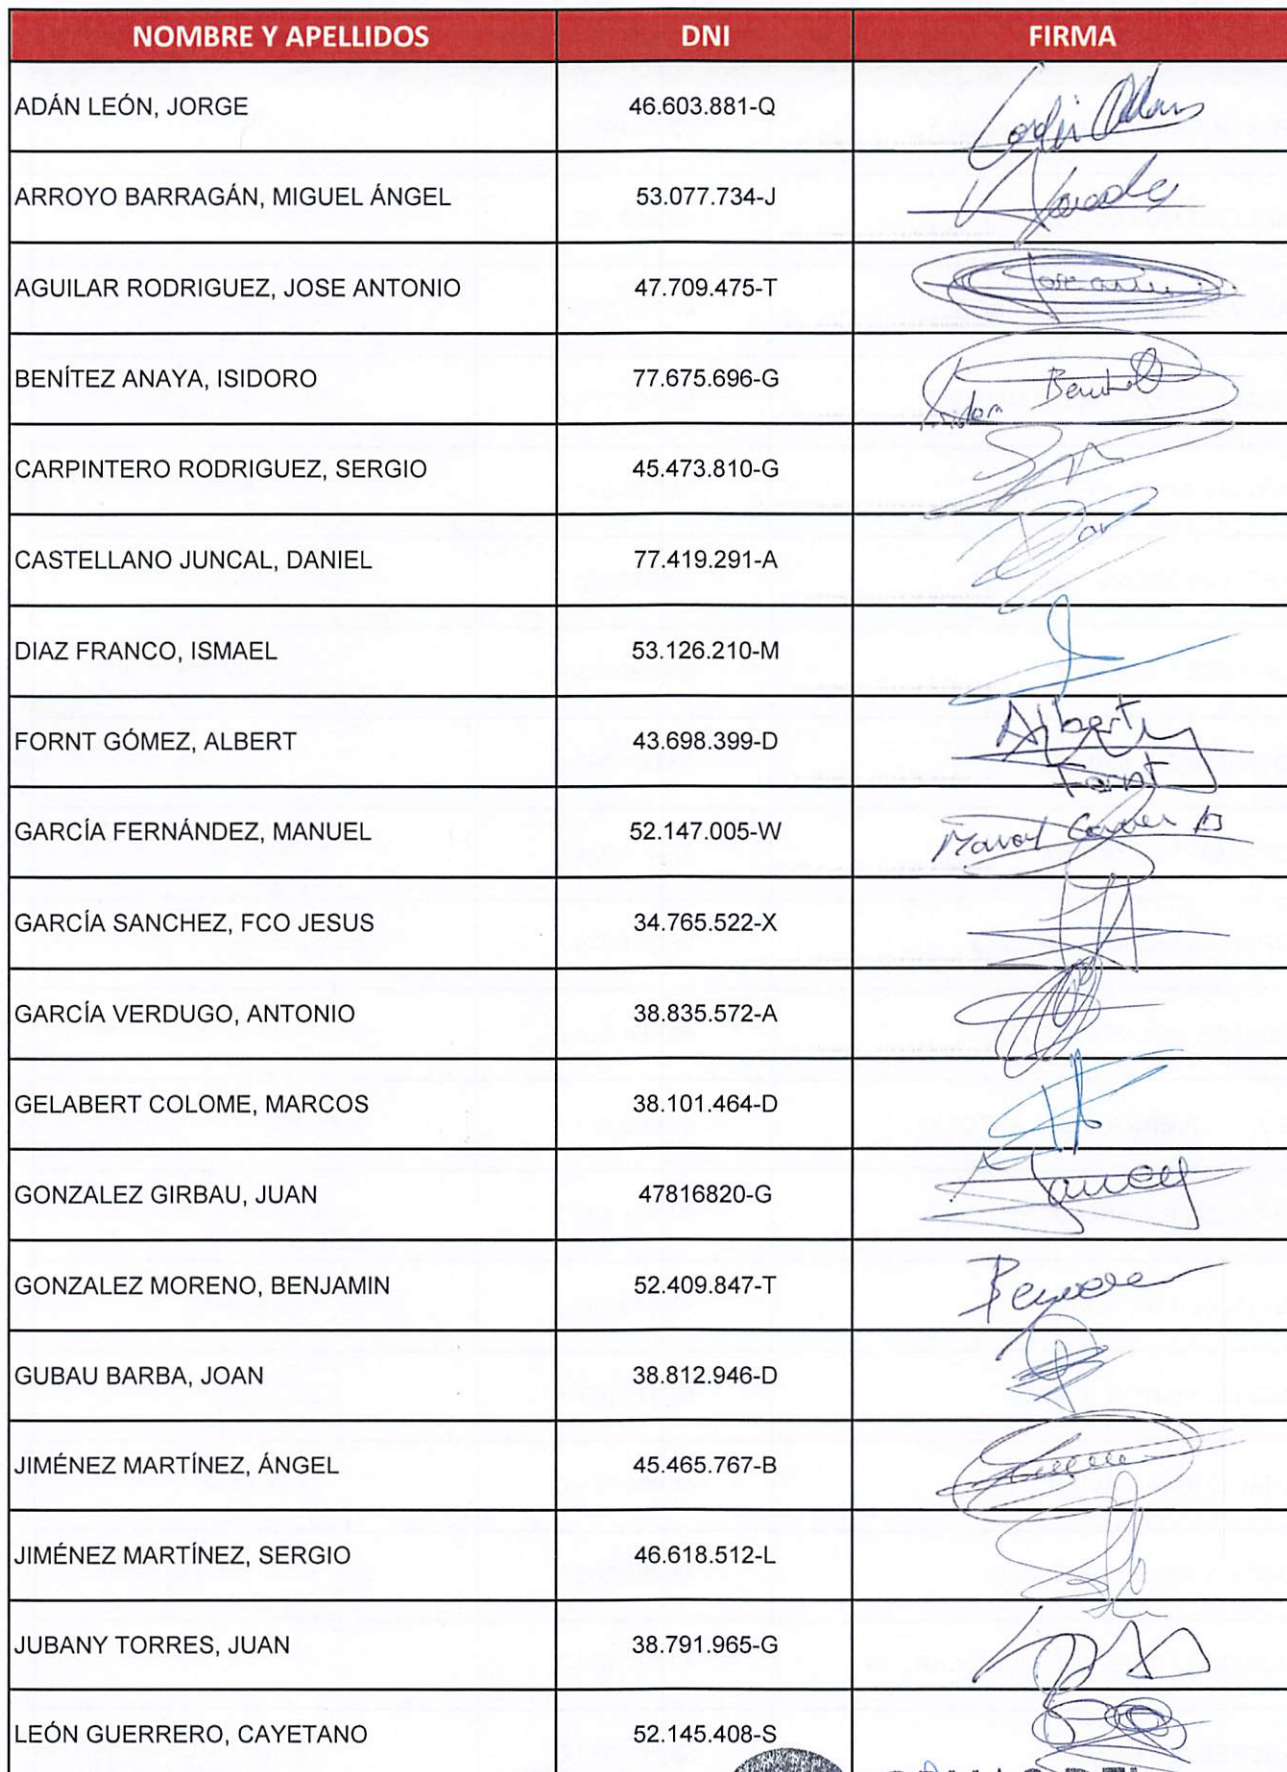 NOMBRE Y APELLIDOS DNI FIRMA
ADÁN LEÓN, JORGE 46.603.881-Q
ARROYO BARRAGÁN, MIGUEL ÁNGEL 53.077.734-J
AGUILAR RODRIGUEZ, JOSE ANTONIO 47.709.475-T
BENÍTEZ ANAYA, ISIDORO 77.675.696-G
CARPINTERO RODRIGUEZ, SERGIO 45.473.810-G
CASTELLANO JUNCAL, DANIEL 77.419.291-A
DIAZ FRANCO, ISMAEL 53.126.210-M
FORNT GÓMEZ, ALBERT 43.698.399-D Albert
Fornt
GARCÍA FERNÁNDEZ, MANUEL 52.147.005-W
GARCÍA SANCHEZ, FCO JESUS 34.765.522-X
GARCÍA VERDUGO, ANTONIO 38.835.572-A
GELABERT COLOME, MARCOS 38.101.464-D
GONZALEZ GIRBAU, JUAN 47816820-G
GONZALEZ MORENO, BENJAMIN 52.409.847-T
GUBAU BARBA, JOAN 38.812.946-D
JIMÉNEZ MARTÍNEZ, ÁNGEL 45.465.767-B
JIMÉNEZ MARTÍNEZ, SERGIO 46.618.512-L
JUBANY TORRES, JUAN 38.791.965-G
LEÓN GUERRERO, CAYETANO 52.145.408-S